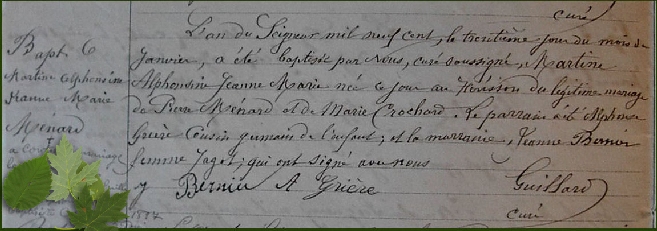 curé
L'an du Seigneur mil neuf cent, le trentième jour du mois de
Janvier, a été baptisée par Nous, curé soussigné, Martine
Alphonsine Jeanne Marie née ce jour au du légitime mariage
de Pierre Ménard et de Marie Crochard. Le parrain a été Alphonse
Grière cousin germain de l'enfant; et la marraine, Jeanne Bernier
femme Jaget; qui ont signé avec nous
J Bernier A Grière Guillard
curé
Bapt. 6
Martine Alphonsine
Jeanne Marie
Ménard